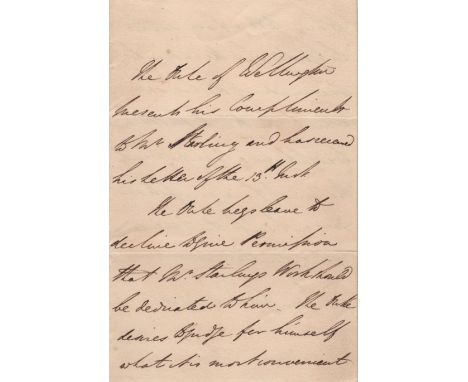 The Duke of Wellington
presents his Compliments
to Mr Starling and has received
his Letter of the 13th Inst
The Duke begs leave to
decline to give Permission
that Mr Starlings Work should
be dedicated to him. The Duke
desires to judge for himself
what is most convenient